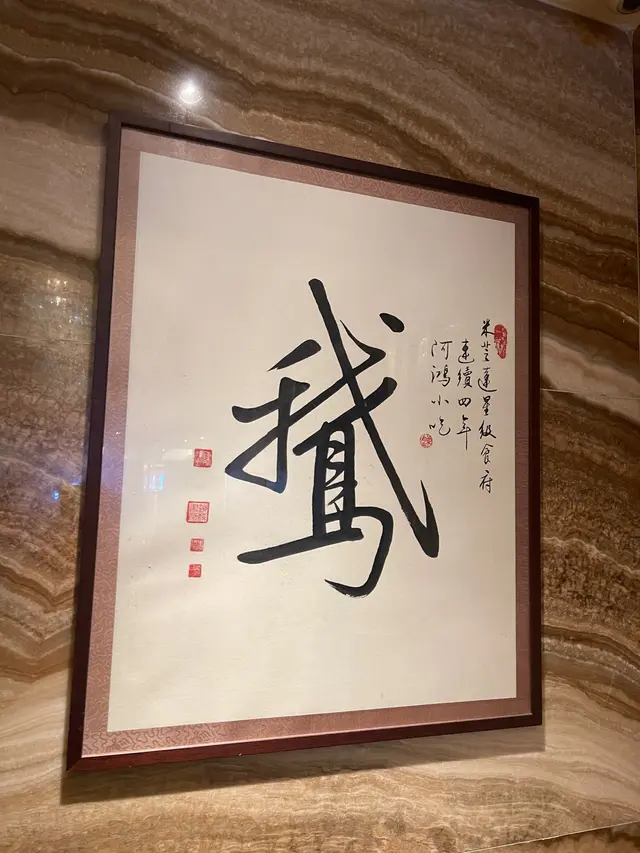 米芝連星級食府
連續四年
阿鴻小吃
鵞